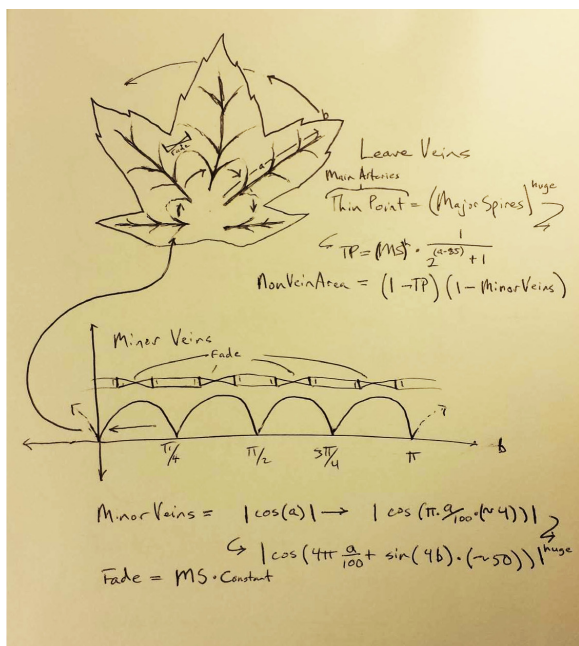 b
Fade
a
Leave Veins
Main Arteries
Thin Point = (Major Spires)^huge
TP = (MS)^k · 1 / (2^(a-85) + 1)
NonVeinArea = (1-TP)(1-MinorVeins)
Minor Veins
Fade
π/4 π/2 3π/4 π b
Minor Veins = |cos(a)| → |cos(π·a/100·(~4))|
|cos(4π a/100 + sin(4b)·(~50))|^huge
Fade = MS·Constant